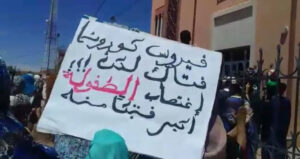 فيروس كورونا
فتاك لكن !!!
إغتصاب الطفولة
أكبر فتكا منه